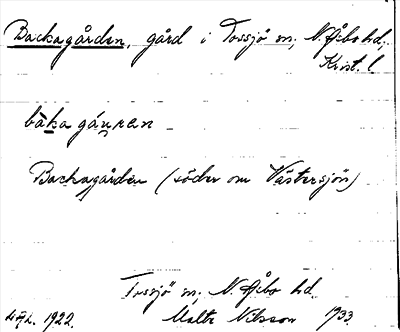 Backagården, gård i Tossjö sn, N. Åsbo hd,
Krist. l
båka gáuren
Backagården (söder om Västersjön)
Tossjö sn, N. Åsbo hd.
1922. Malte Nilsson 1933